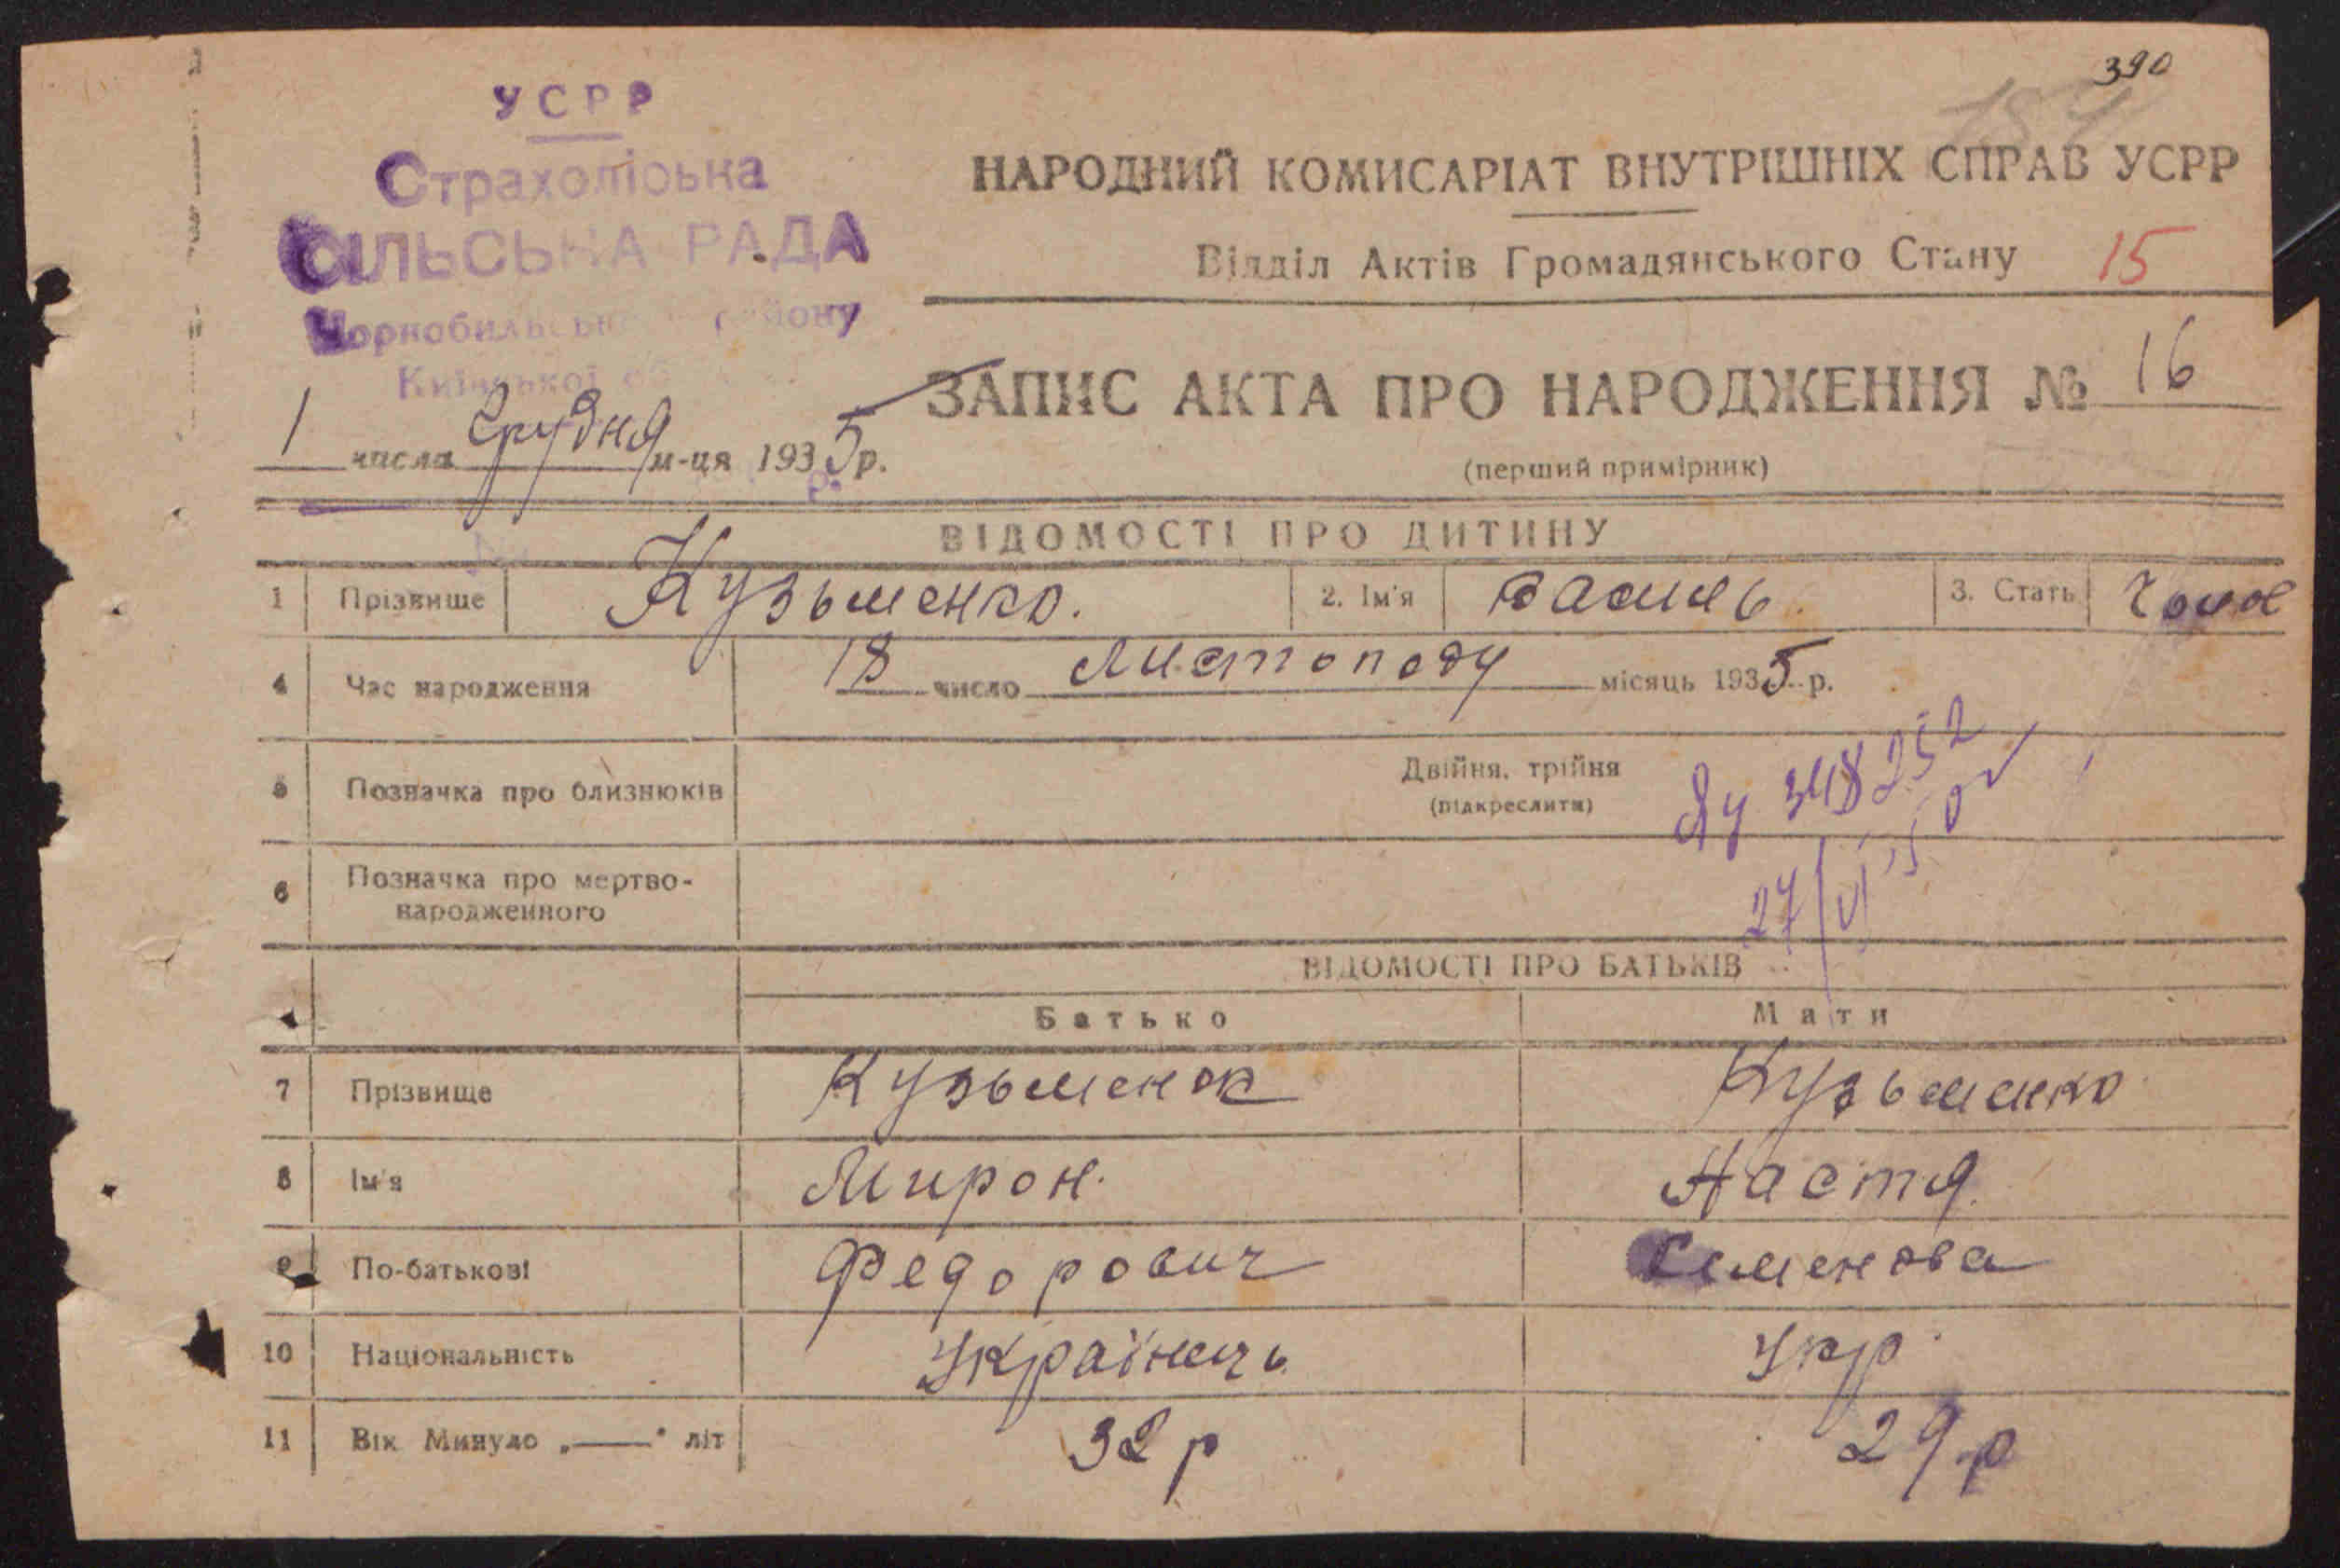 390
УСРР
Страхоліська
СІЛЬСЬКА РАДА
Чорнобильськ району
Київської
НАРОДНИЙ КОМИСАРІАТ ВНУТРІШНІХ СПРАВ УСРР
Відділ Актів Громадянського Стану 15
ЗАПИС АКТА ПРО НАРОДЖЕННЯ № 16
1 числа Грудня м-ця 1935 р.
(перший примірник)
ВІДОМОСТІ ПРО ДИТИНУ
1 Прізвище Кузьменко. 2. Ім'я Василь 3. Стать Чолов
4 Час народження 18 число Листопаду місяць 1935 р.
5 Позначка про близнюків Двійня, трійня
(підкреслити)
Яу 348252
6 Позначка про мертво-
народженного
27/VI 50
ВІДОМОСТІ ПРО БАТЬКІВ
Батько Мати
7 Прізвище Кузьменок Кузьменко
8 Ім'я Мирон. Настя
9 По-батькові Федорович Семенова
10 Національність Українець Укр
11 Вік Минуло „——" літ 32 р 29 р